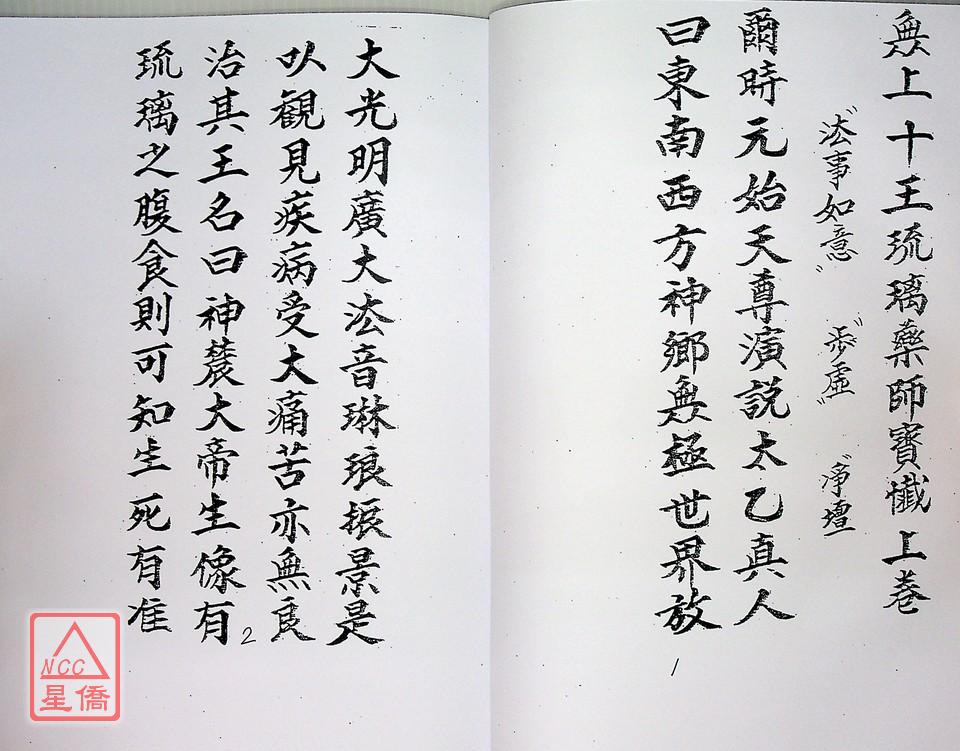 無上十王琉璃藥師寶懺上卷
"法事如意" "步虛" "淨壇
爾時元始天尊演說太乙真人
曰東南西方神鄉無極世界放
1
大光明廣大法音琳琅振景是
以観見疾病受大痛苦亦無良
治其王名曰神農大帝生像有
琉璃之腹食則可知生死有准
2
NCC
星僑